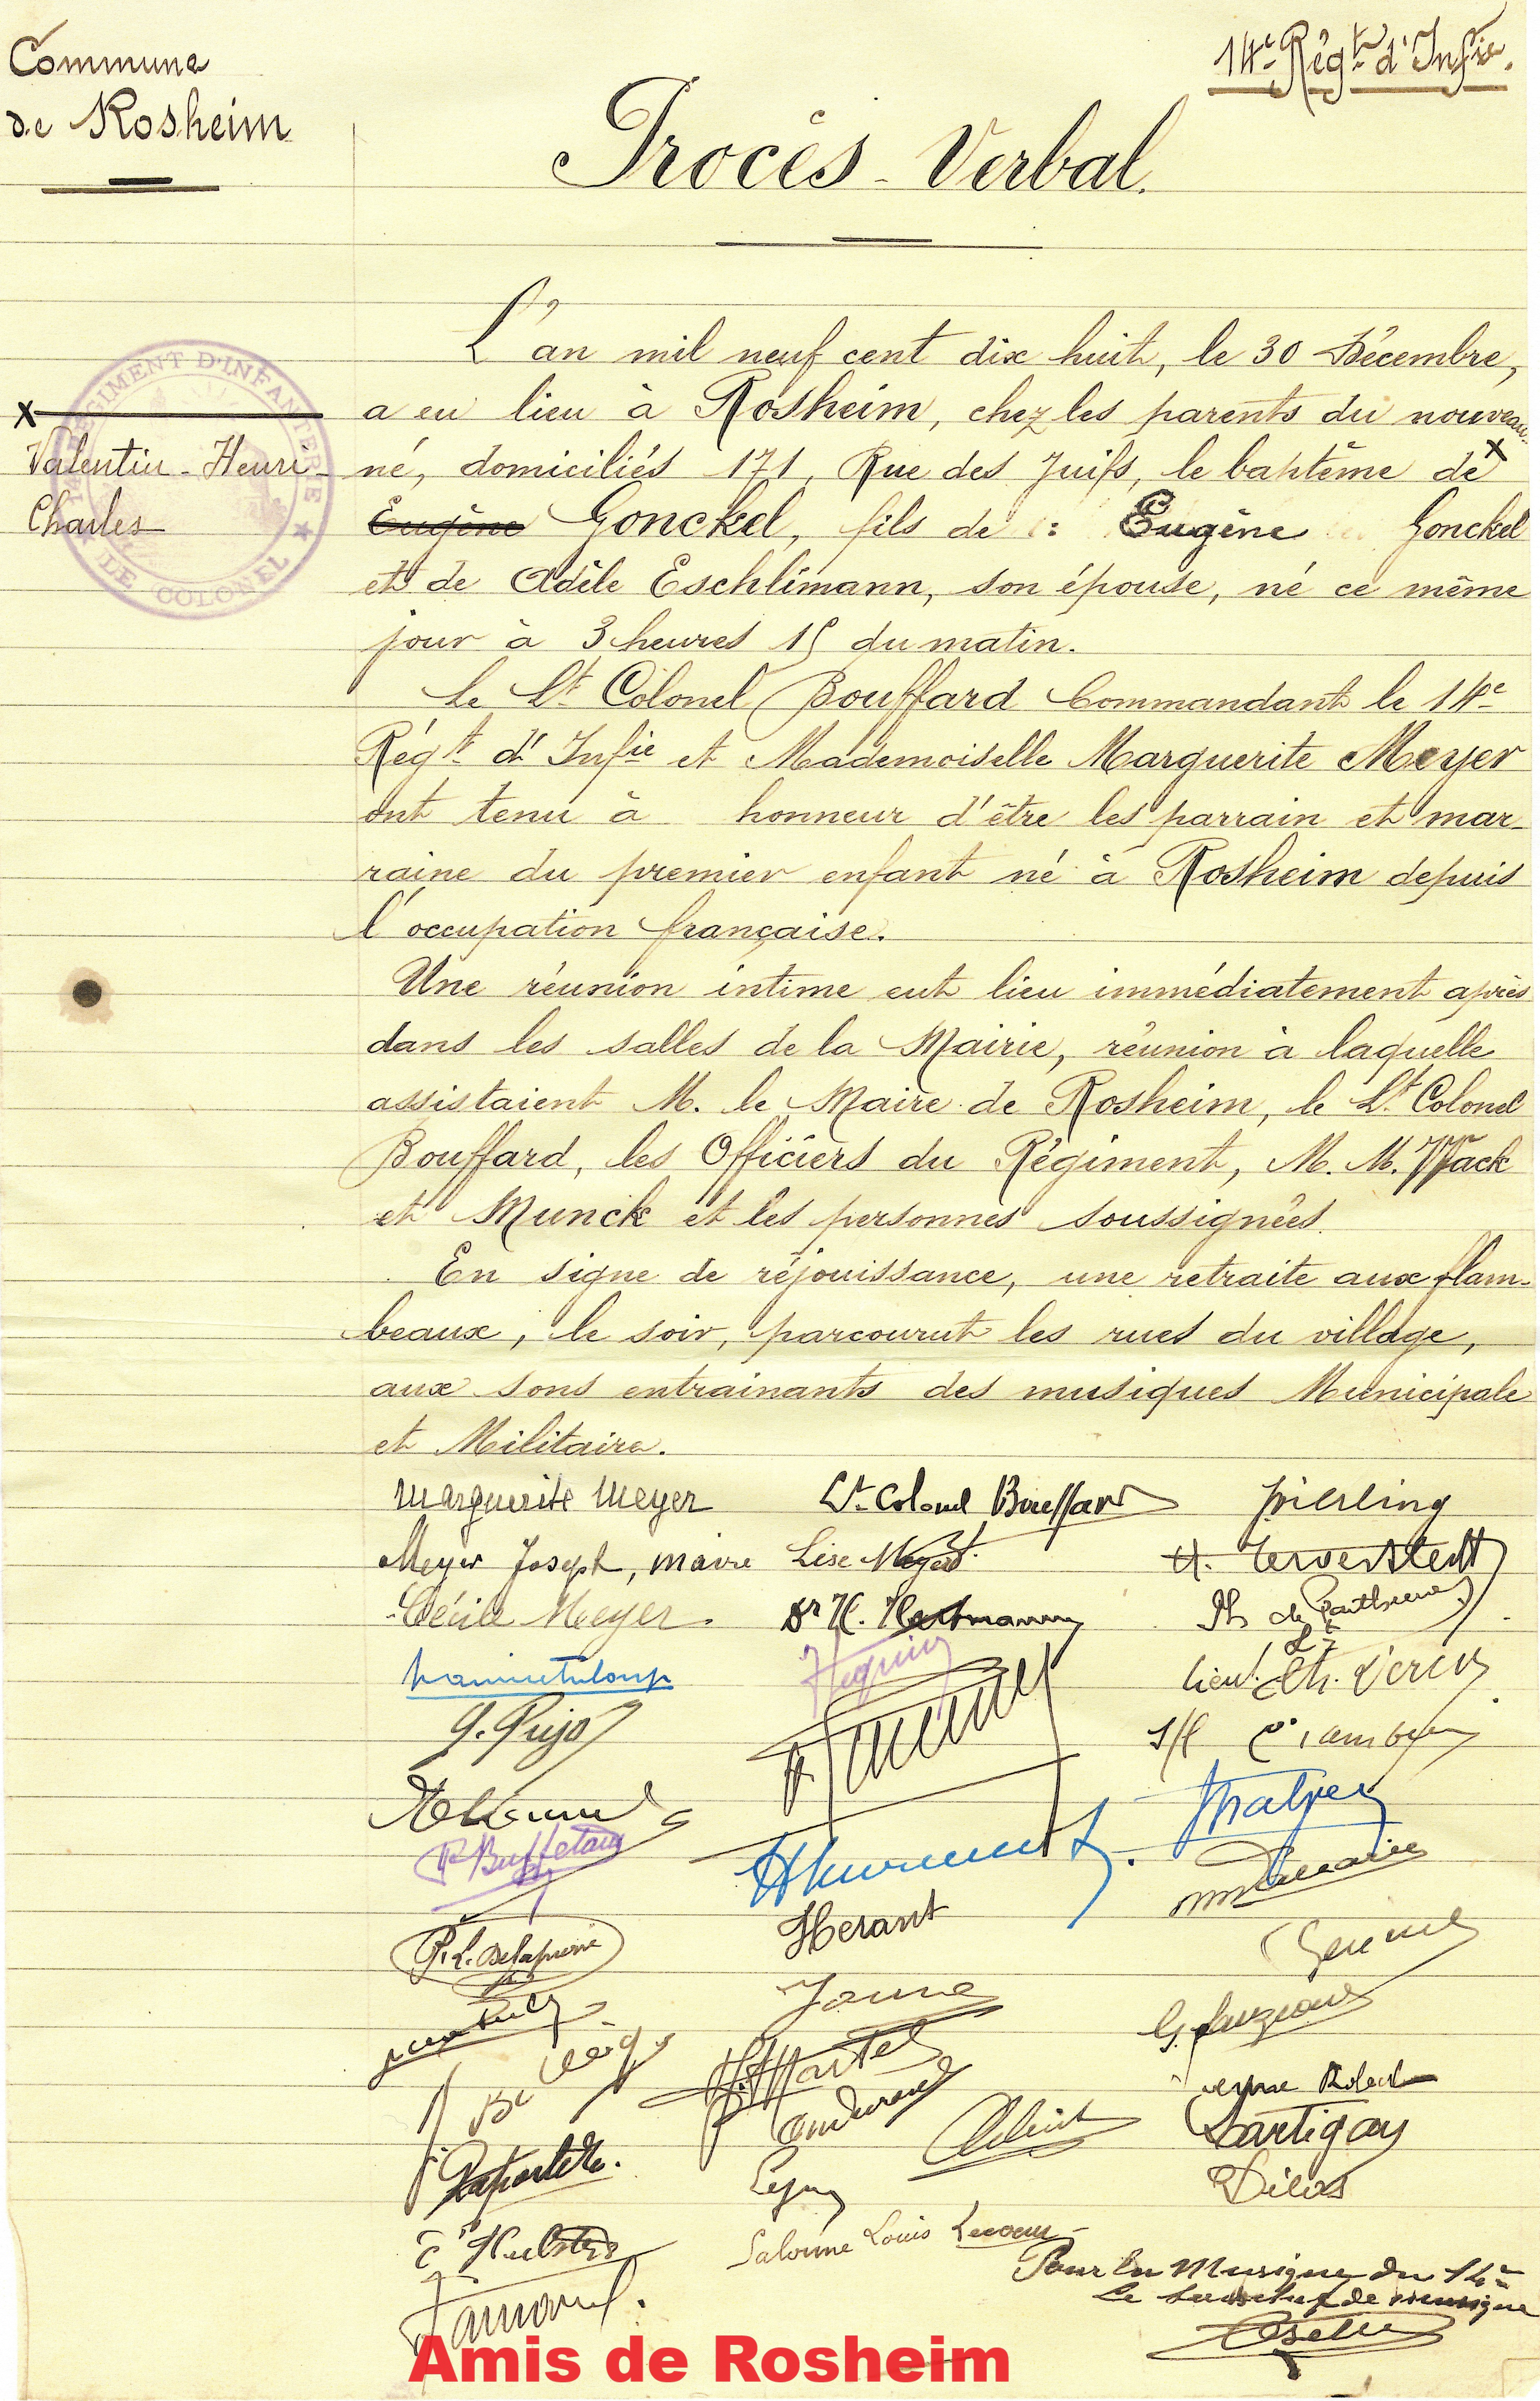 Commune
de Rosheim
14e Régt d'Infie.
Procès-Verbal.
L'an mil neuf cent dix huit, le 30 Décembre,
a eu lieu à Rosheim, chez les parents du nouveau-
né, domiciliés 171, Rue des Juifs, le baptême de x
x
Valentin-Henri-
Charles
RÉGIMENT D'INFANTERIE
LE COLONEL
Eugène Gonckel, fils de : Eugène Gonckel
et de Adèle Eschlimann, son épouse, né ce même
jour à 3 heures 15 du matin.
Le Lt Colonel Bouffard Commandant le 14e
Régt d'Infie et Mademoiselle Marguerite Meyer
ont tenu à honneur d'être les parrain et mar-
raine du premier enfant né à Rosheim depuis
l'occupation française.
Une réunion intime eut lieu immédiatement après
dans les salles de la Mairie, réunion à laquelle
assistaient M. le Maire de Rosheim, le Lt Colonel
Bouffard, les Officiers du Régiment, M. M. Wack
et Munck et les personnes soussignées.
En signe de réjouissance, une retraite aux flam-
beaux, le soir, parcourut les rues du village,
aux sons entrainants des musiques Municipale
et Militaire.
Marguerite Meyer Lt-Colonel Bouffard Pierling
Meyer Joseph, maire Lise Meyer
Cécile Meyer. Dr H. Hartmann
Hequin
Lieut.
G. Pujo
P. Buffetaut
Herant
P. L. Delapierre
Janne
Martel
Dartigay
Laporte
Dilos
Salonne Louis
Pour la Musique du 14e
Le sous chef de musique
Amis de Rosheim